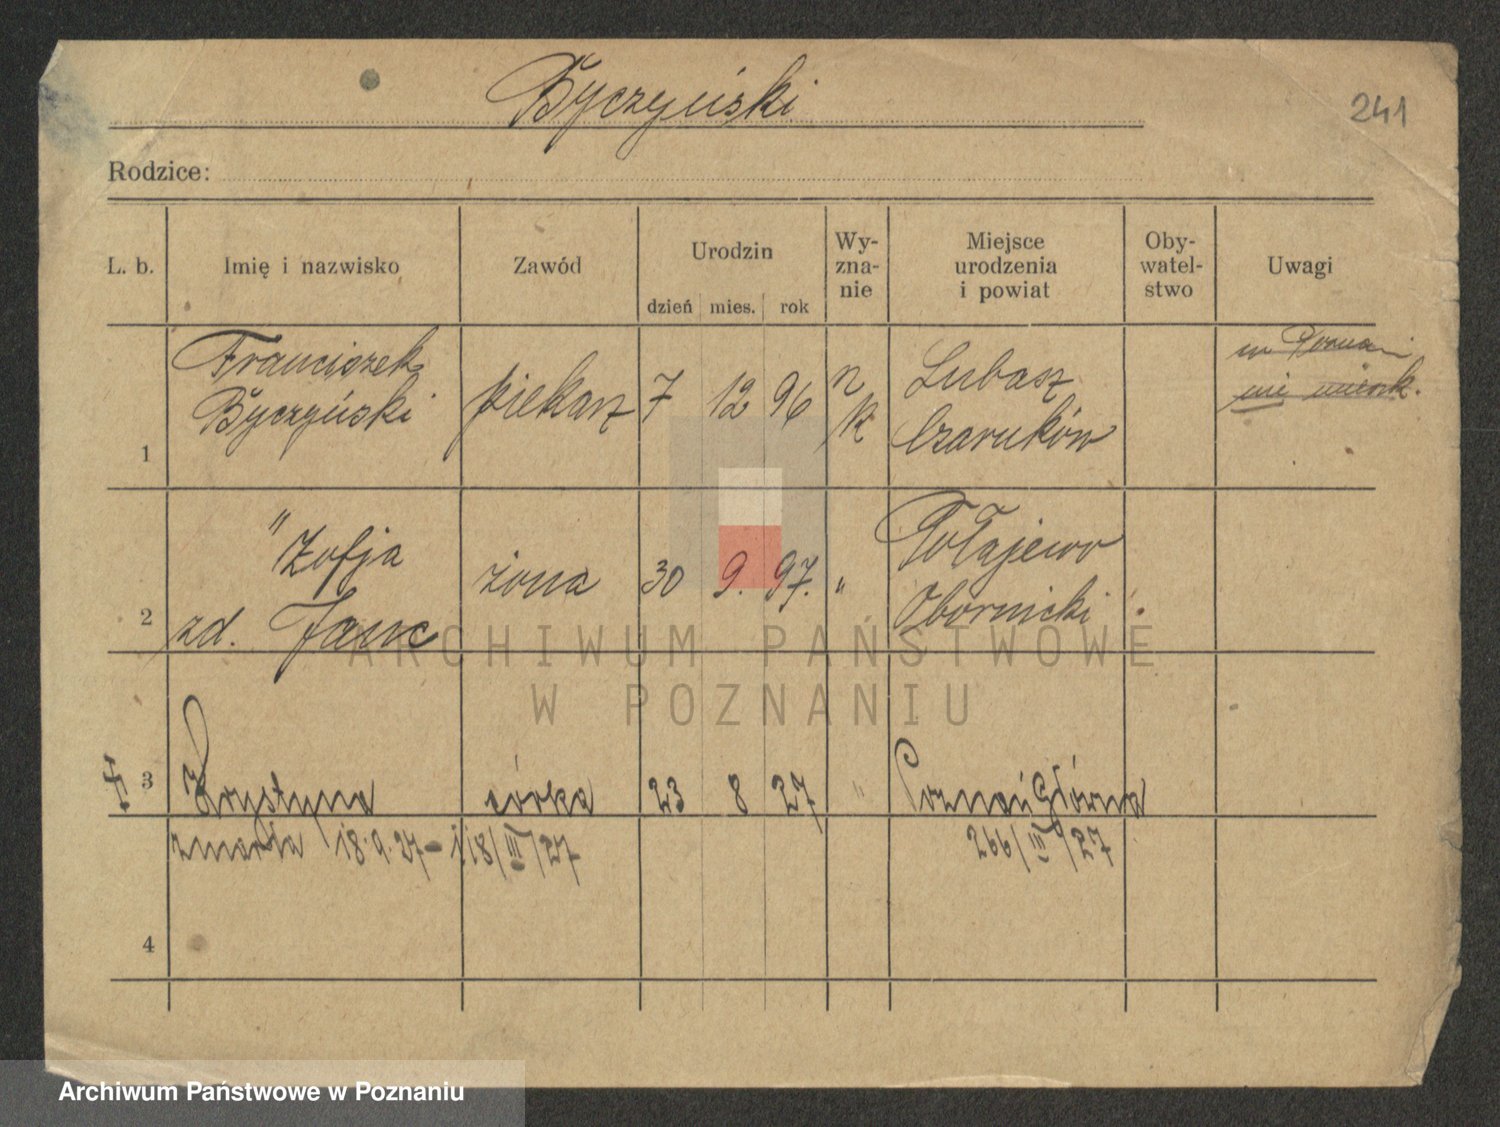 Byczyński
241
Rodzice:
L. b.
Imię i nazwisko
Zawód
Urodzin
dzień mies. rok
Wy-
zna-
nie
Miejsce
urodzenia
i powiat
Oby-
watel-
stwo
Uwagi
1
Franciszek
Byczyński
piekarz
7 12 96
Lubasz
Czarnków
nie mieszk.
2
" Zofja
zd. Janc
żona
30 9. 97.
"
Połajewo
Obornicki
3
Krystyna
córka
23 8 27
"
Poznań Główna
zmarła 18.9.27 – 118/III/27
266/III/27
4
ARCHIWUM PAŃSTWOWE
W POZNANIU
Archiwum Państwowe w Poznaniu